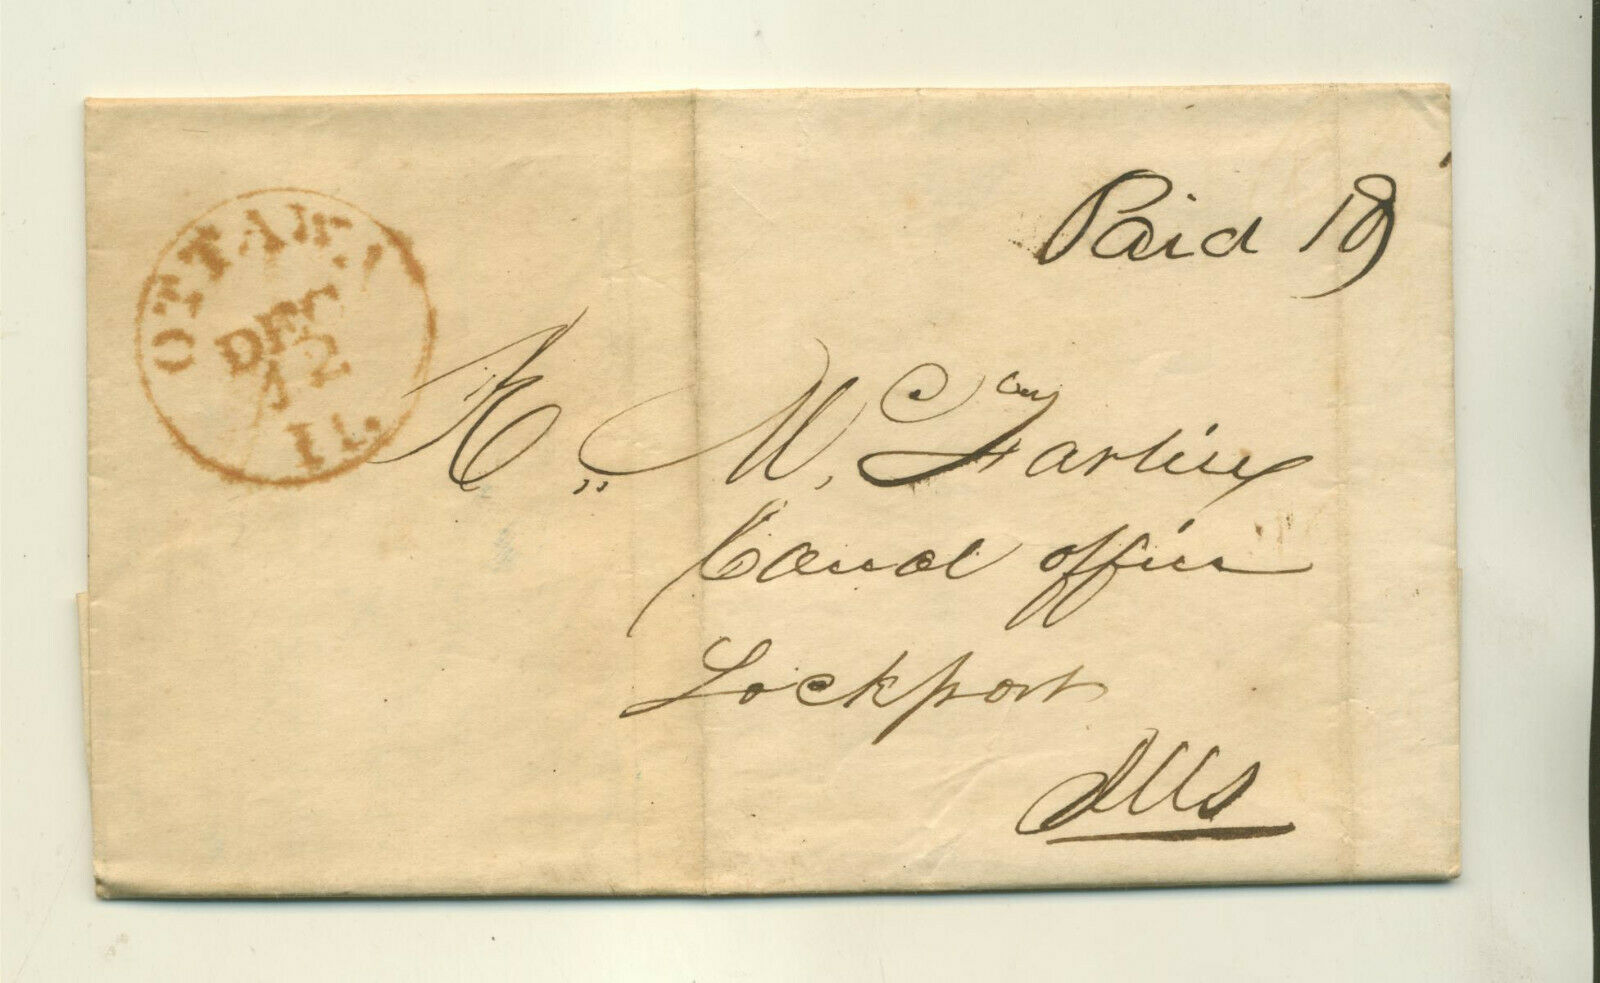 OTTAWA
DEC
12
Il.
Paid 10
A. McFarling
Canal office
Lockport
Ills